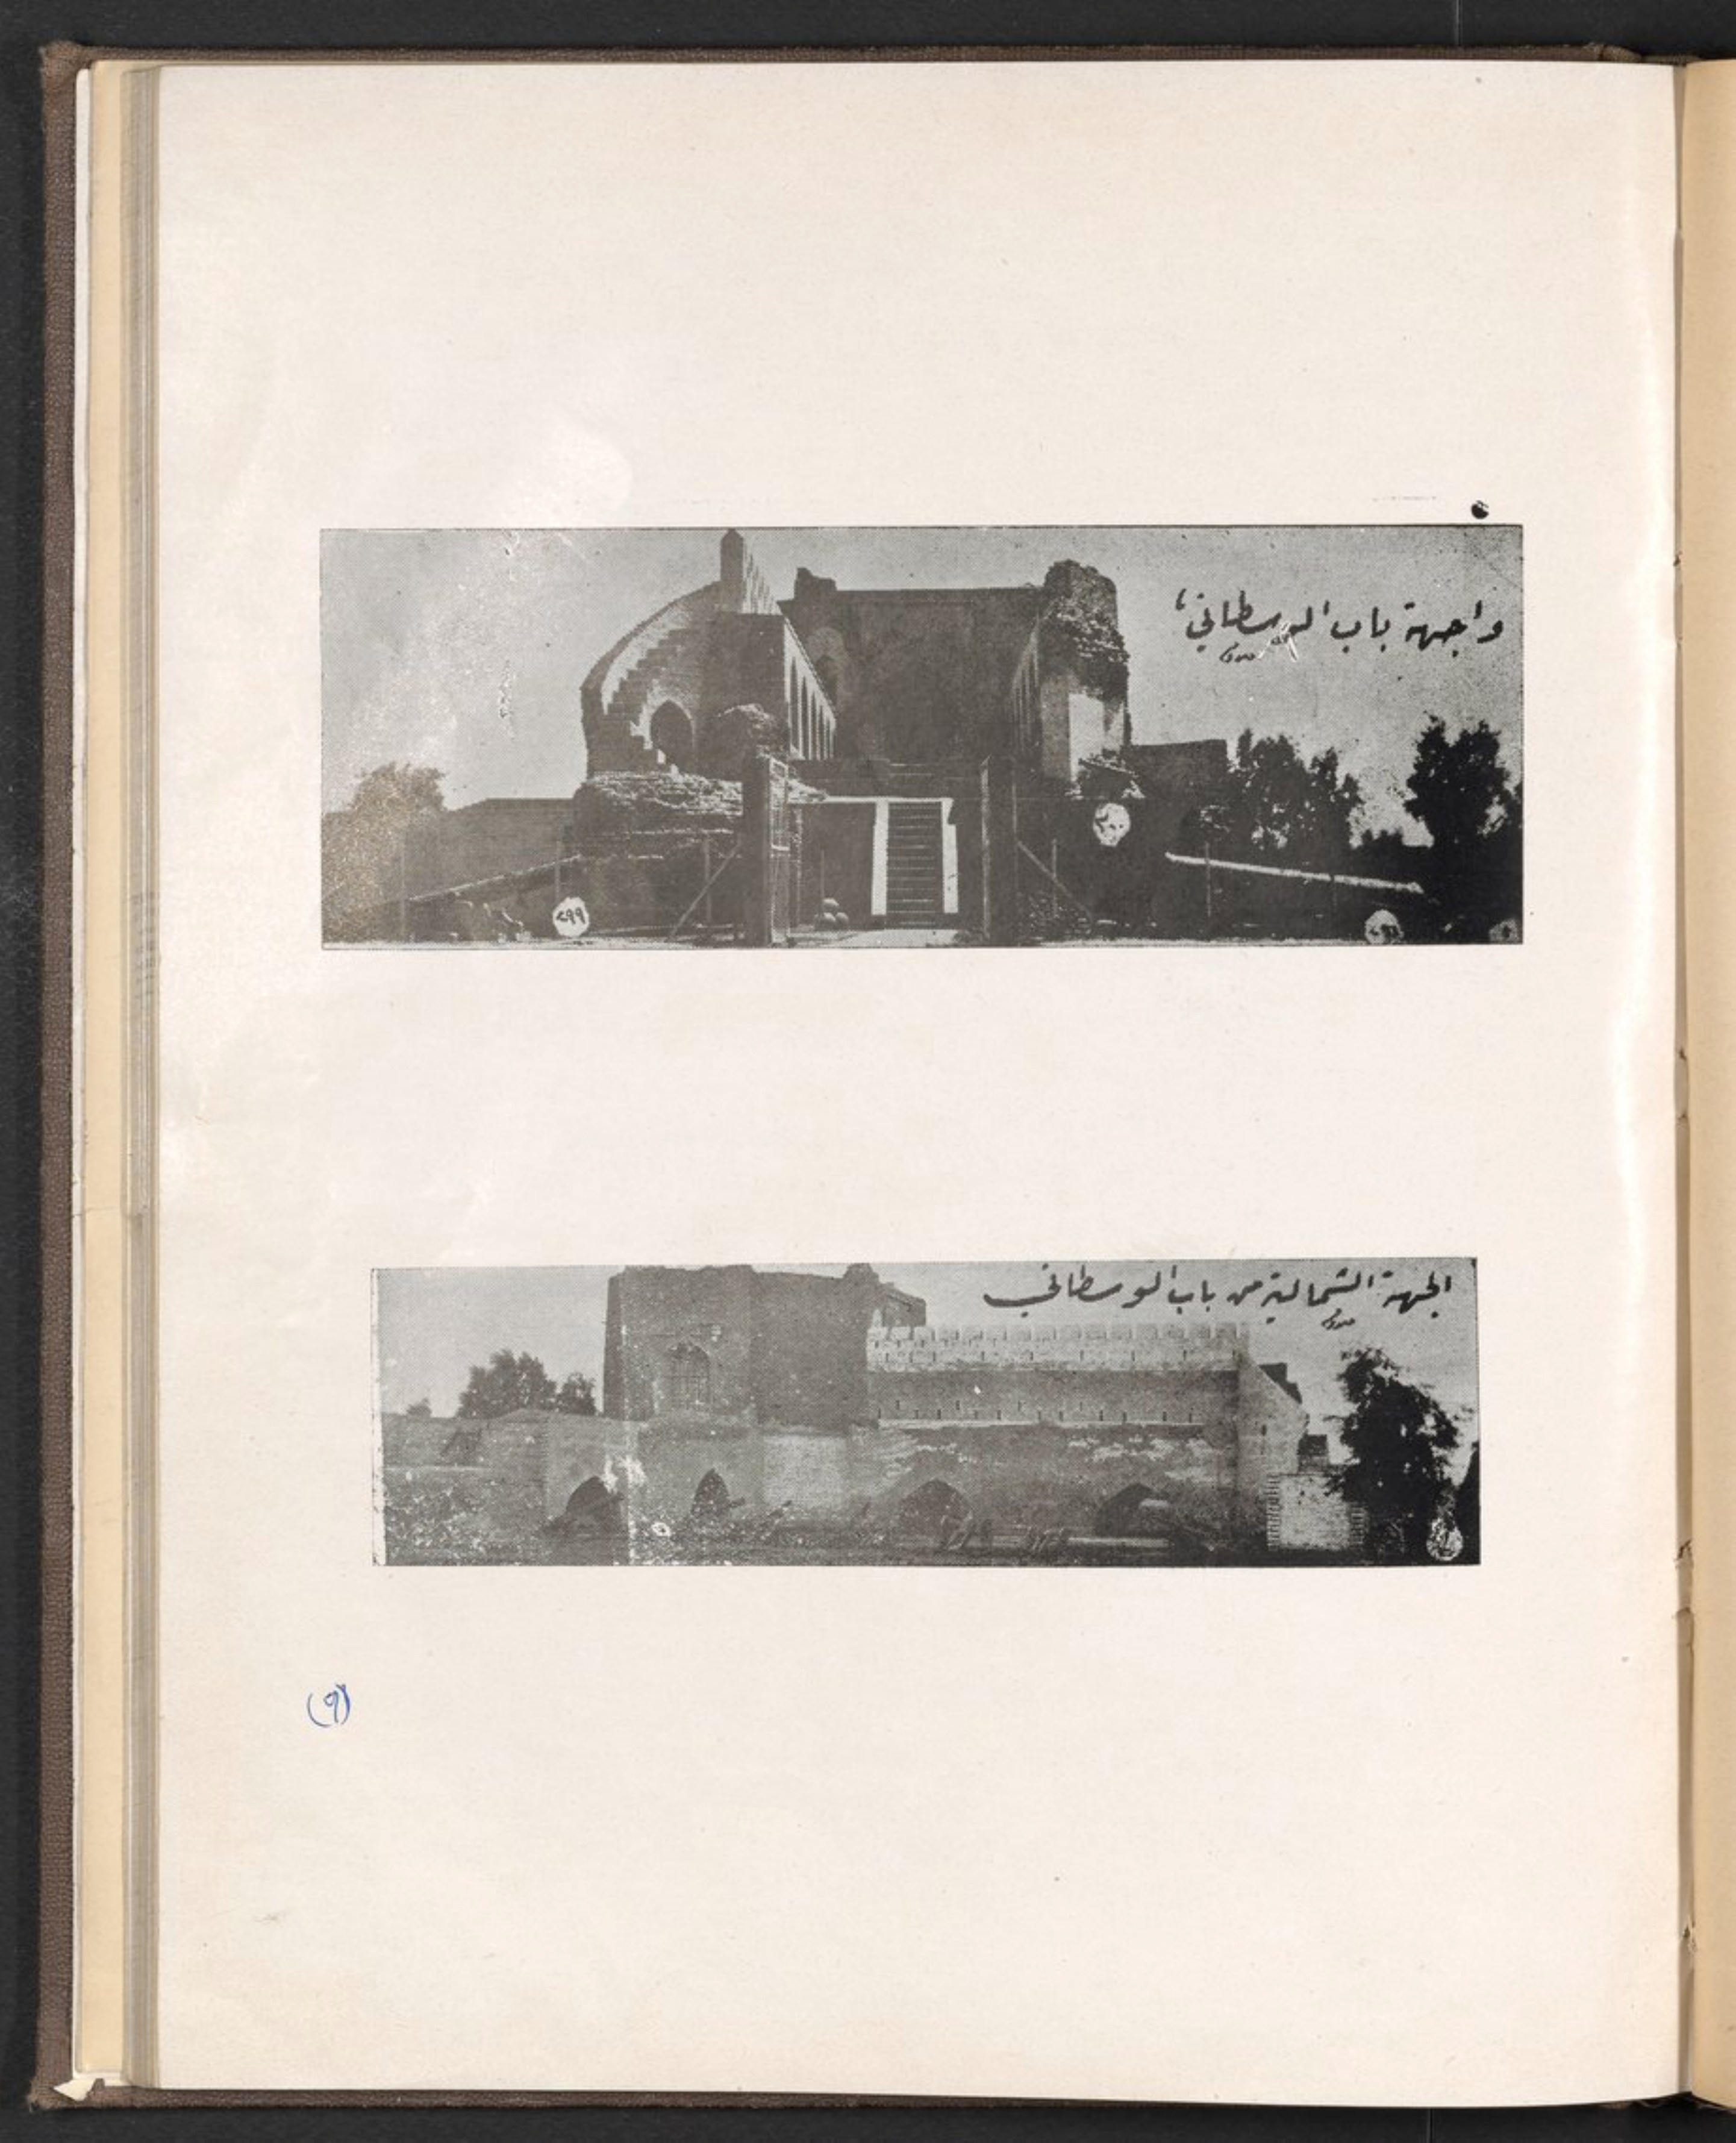 واجهة باب الوسطاني
٢٩٩
الجهة الشمالية من باب الوسطاني
(٩)